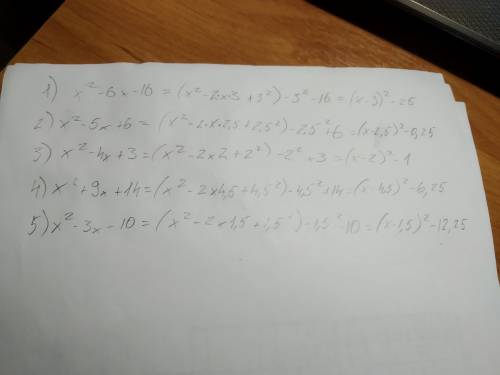 1) x² - 6x - 16 = (x² - 2x·3 + 3²) - 3² - 16 = (x - 3)² - 25
2) x² - 5x + 6 = (x² - 2·x·2,5 + 2,5²) - 2,5² + 6 = (x - 2,5)² - 0,25
3) x² - 4x + 3 = (x² - 2x2 + 2²) - 2² + 3 = (x - 2)² - 1
4) x² + 9x + 14 = (x² - 2x4,5 + 4,5²) - 4,5² + 14 = (x - 4,5)² - 6,25
5) x² - 3x - 10 = (x² - 2x1,5 + 1,5²) - 1,5² - 10 = (x - 1,5)² - 12,25